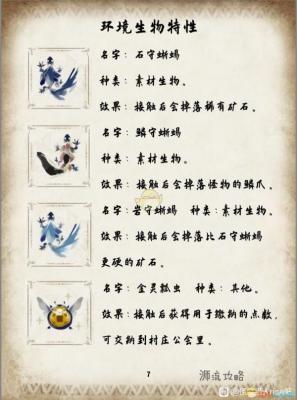 环境生物特性
名字：石守蜥蜴
种类：素材生物。
效果：接触后会掉落稀有矿石。
名字：鳞守蜥蜴
种类：素材生物。
效果：接触后会掉落怪物的鳞爪。
名字：岩守蜥蜴 种类：素材生物。
效果：接触后会掉落比石守蜥蜴
更硬的矿石。
名字：金灵瓢虫 种类：其他。
效果：接触后获得用于缴纳的点数，
可交纳到村庄公会里。
7
游戏攻略